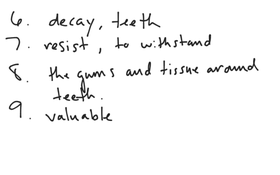 6. decay, teeth
7. resist, to withstand
8. the gums and tissue around
teeth.
9. valuable